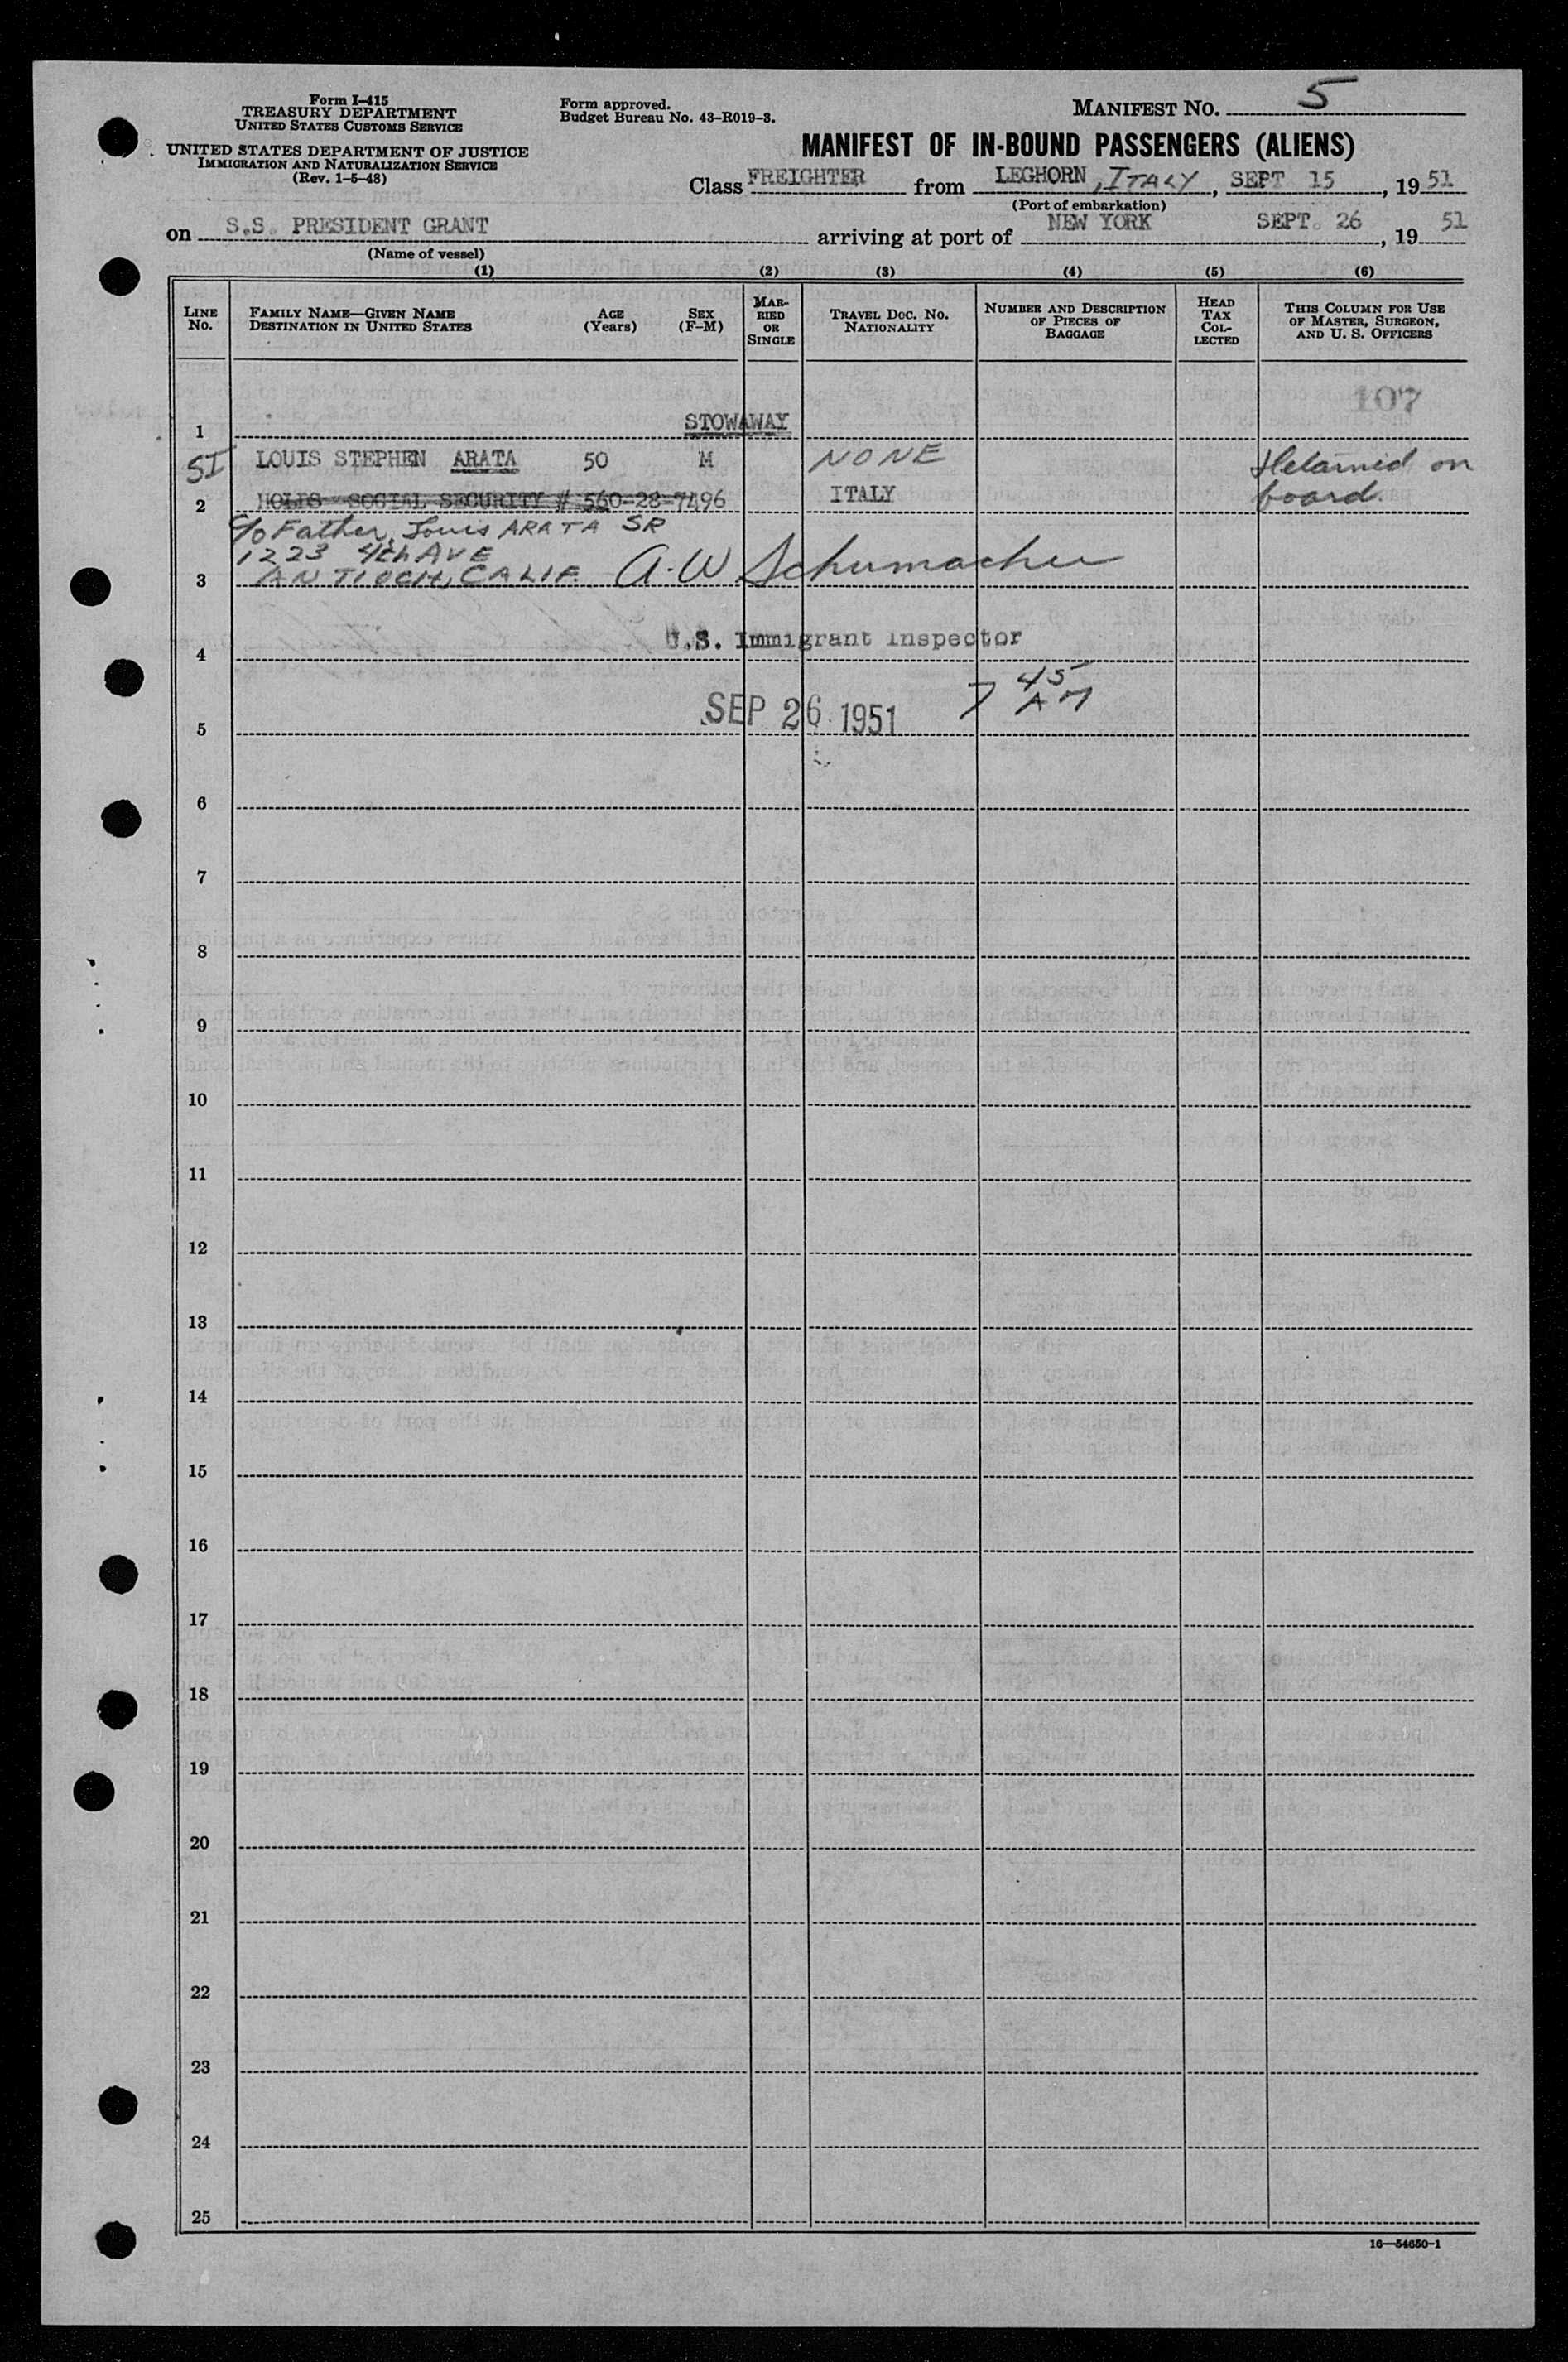 Form I-415
TREASURY DEPARTMENT
UNITED STATES CUSTOMS SERVICE
UNITED STATES DEPARTMENT OF JUSTICE
IMMIGRATION AND NATURALIZATION SERVICE
(Rev. 1-5-48)
Form approved.
Budget Bureau No. 43-R019-3.
MANIFEST NO. 5
MANIFEST OF IN-BOUND PASSENGERS (ALIENS)
Class FREIGHTER from LEGHORN, ITALY, SEPT 15, 1951
(Port of embarkation)
on S.S. PRESIDENT GRANT arriving at port of NEW YORK SEPT. 26, 1951
(Name of vessel)
(1) (2) (3) (4) (5) (6)
LINE No.
FAMILY NAME—GIVEN NAME
DESTINATION IN UNITED STATES
AGE (Years)
SEX (F-M)
MARRIED OR SINGLE
TRAVEL DOC. NO.
NATIONALITY
NUMBER AND DESCRIPTION OF PIECES OF BAGGAGE
HEAD TAX COLLECTED
THIS COLUMN FOR USE OF MASTER, SURGEON, AND U. S. OFFICERS
107
1 STOWAWAY
SI LOUIS STEPHEN ARATA 50 M NONE Detained on
2 HOLDS SOCIAL SECURITY # 560-28-7496 ITALY board.
c/o Father, Louis ARATA SR
1223 4th AVE
3 ANTIOCH, CALIF. A. W. Schumacher
4 U.S. Immigrant Inspector
5 SEP 26 1951 7 45 AM
6
7
8
9
10
11
12
13
14
15
16
17
18
19
20
21
22
23
24
25
16—54650-1